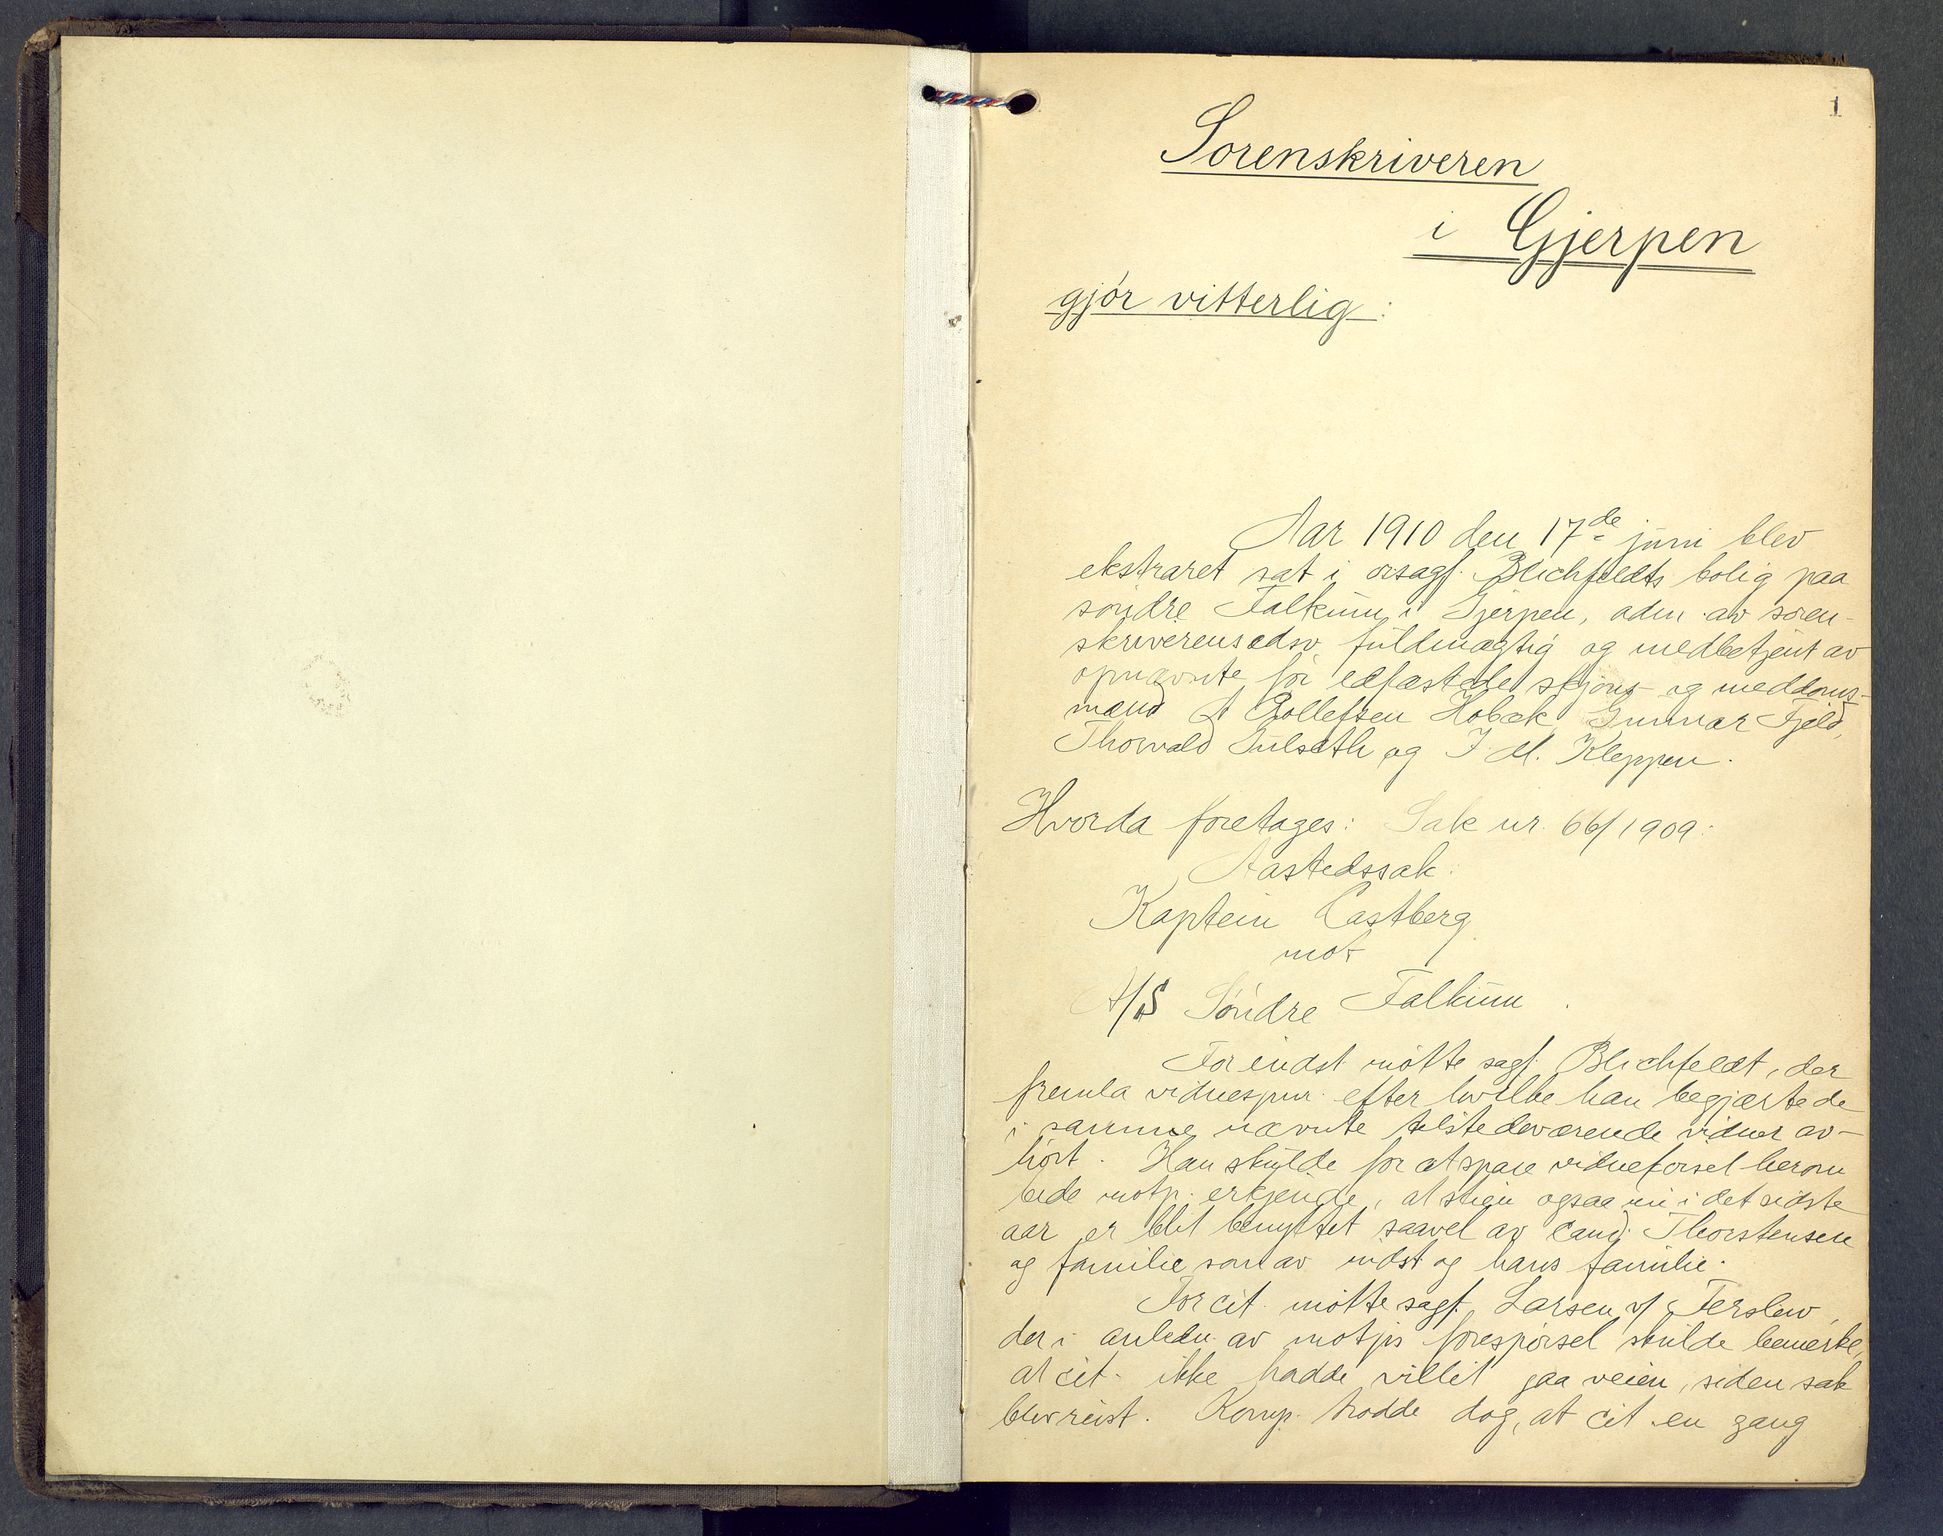 1
Sorenskriveren
i Gjerpen
gjör vitterlig:
Aar 1910 den 17de juni blev
ekstraret sat i orsagf. Blichfeldts bolig paa
söndre Falkum i Gjerpen, adm. av soren-
skriverens edsv. fuldmægtig og medbetjent av
opnævnte för edfæstede skjöns- og meddoms-
mænd A Rollefsen Hobæk, Gunnar Fjeld,
Thorvald Gulseth og I. M. Kleppen.
Hvorda foretages: Sak nr. 66/1909:
Aastedssak:
Kaptein Castberg
mot
A/S Söndre Falkum.
For indst. mötte sagf. Blichfeldt, der
fremla vidnespm. efter hvilke han begjærte de
i samme nævnte tilstedeværende vidner av-
hört. Han skulde for at spare vidneförsel herom
bede motp. erkjende, at stien ogsaa nu i det sidste
aar er blit benyttet saavel av cand. Thorstensen
og familie som av indst og hans familie.
For cit. mötte sagf. Larsen v/ Terslew,
der i anledn. av motp's forespörsel skulde bemerke,
at cit. ikke hadde villet gaa veien, siden sak
blev reist. Komp. trodde dog, at cit en gang